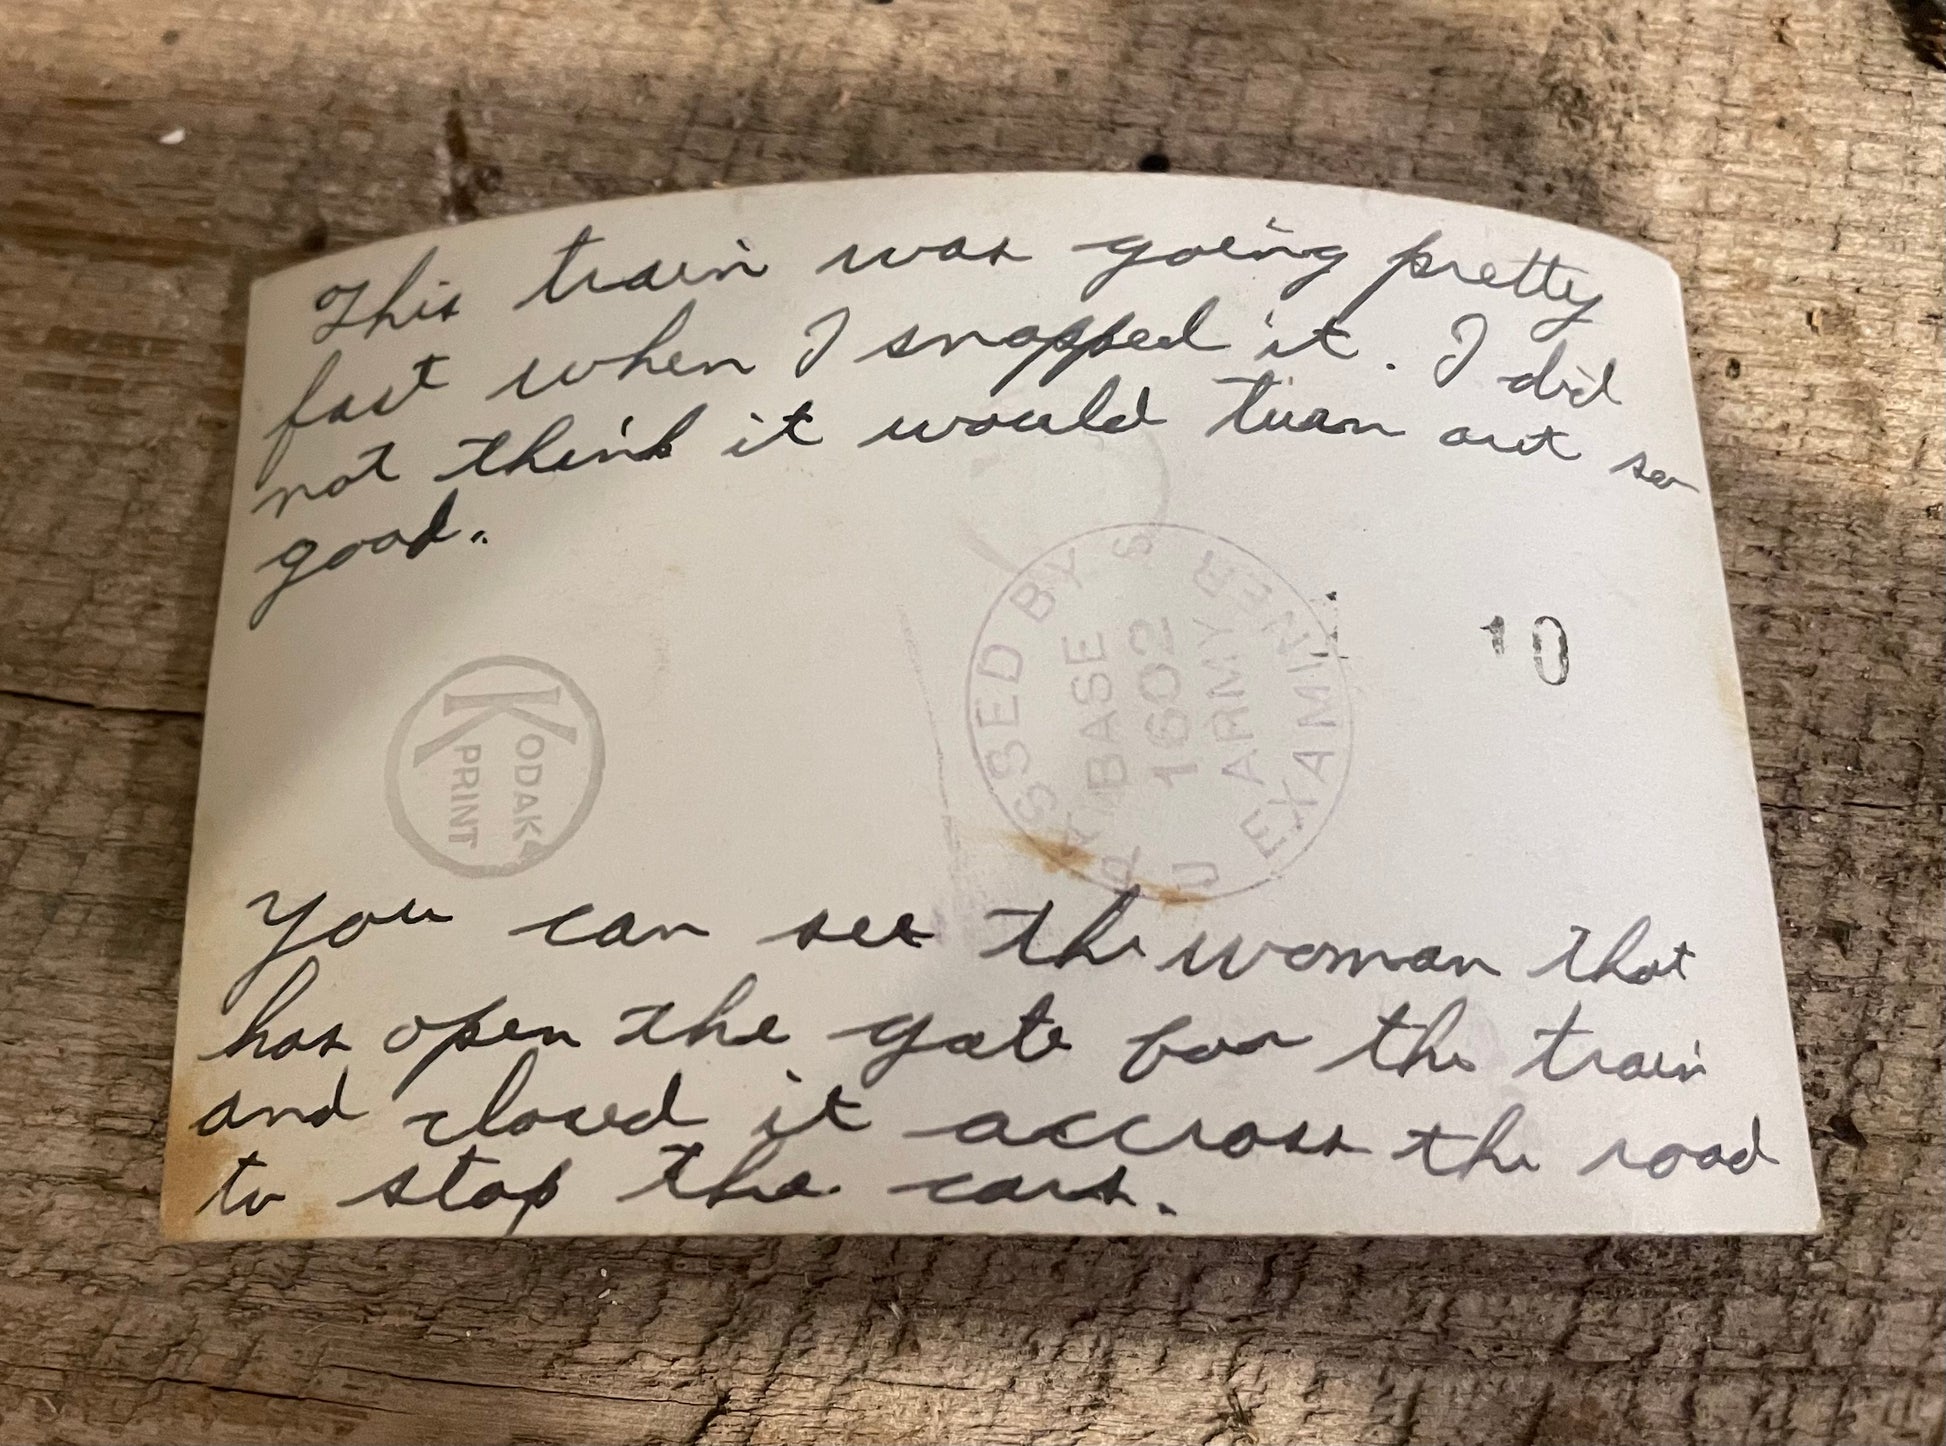 This train was going pretty
fast when I snapped it. I did
not think it would turn out so
good.
PASSED BY
BASE
1602
ARMY
U S
EXAMINER
10
KODAK
PRINT
You can see the woman that
has open the gate for the train
and closed it accross the road
to stop the cars.